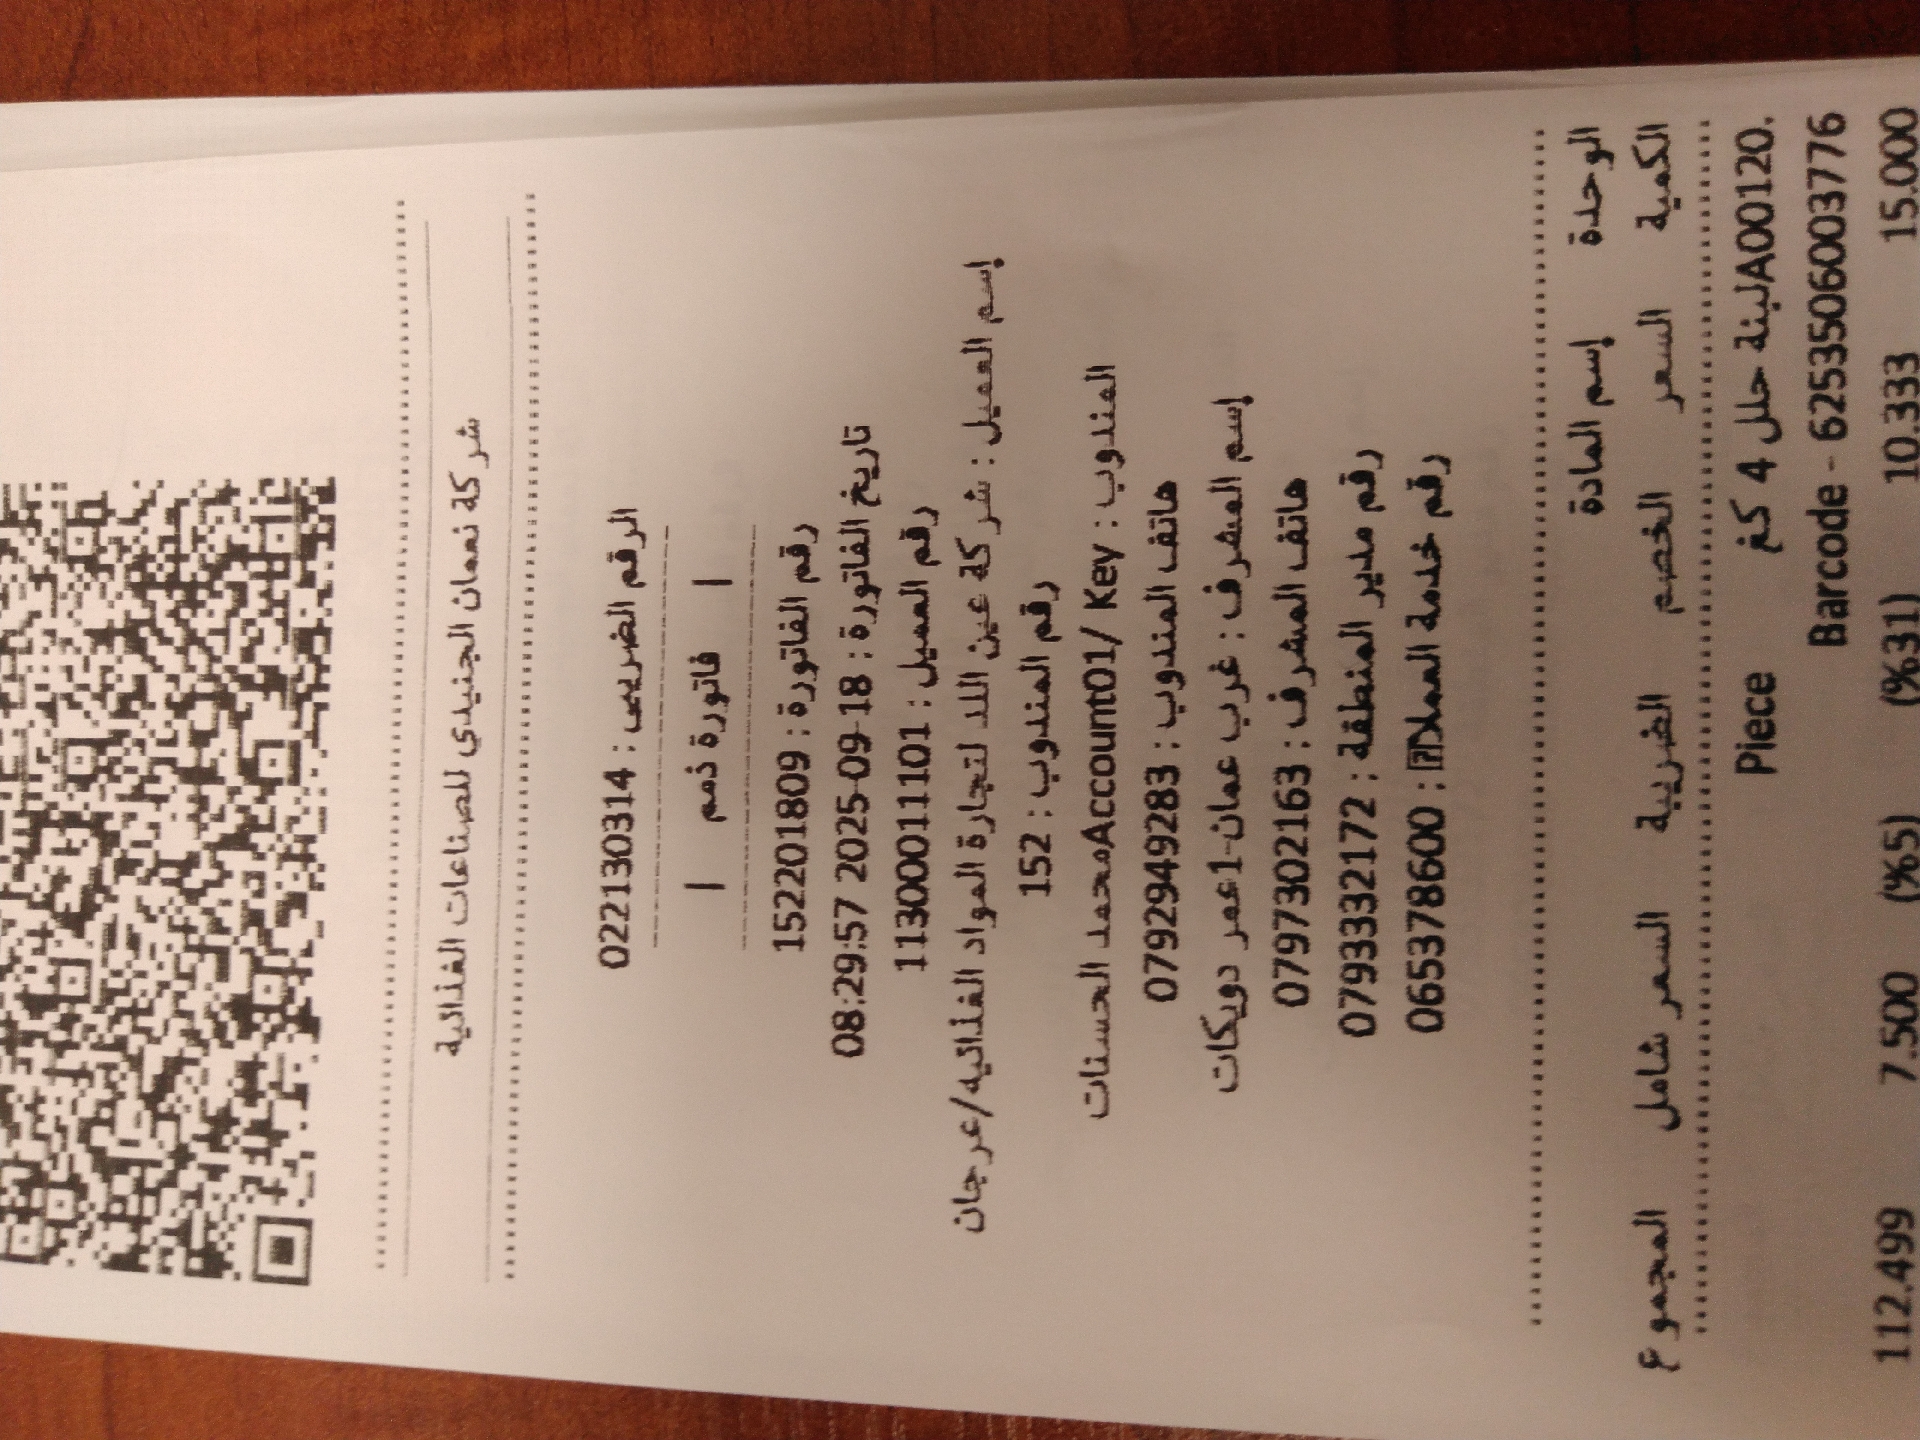 شركة نعمان الجنيدي للصناعات الغذائية
الرقم الضريبي : 022130314
| فاتورة ذمم |
رقم الفاتورة : 152201809
تاريخ الفاتورة : 2025-09-18 08:29:57
رقم العميل : 1130001101
إسم العميل : شركة عين اللد لتجارة المواد الغذائيه/عرجان
رقم المندوب : 152
المندوب : Account01/ Keyمحمد الحسنات
هاتف المندوب : 0792949283
إسم المشرف : غرب عمان-1عمر دويكات
هاتف المشرف : 0797302163
رقم مدير المنطقة : 0793332172
رقم خدمة العملا : 065378600
إسم المادة الوحدة
الكمية السعر الخصم الضريبة السعر شامل المجموع
.A00120لبنة حلل 4 كغ Piece
Barcode - 6253506003776
15.000 10.333 (%31) (%5) 7.500 112.499